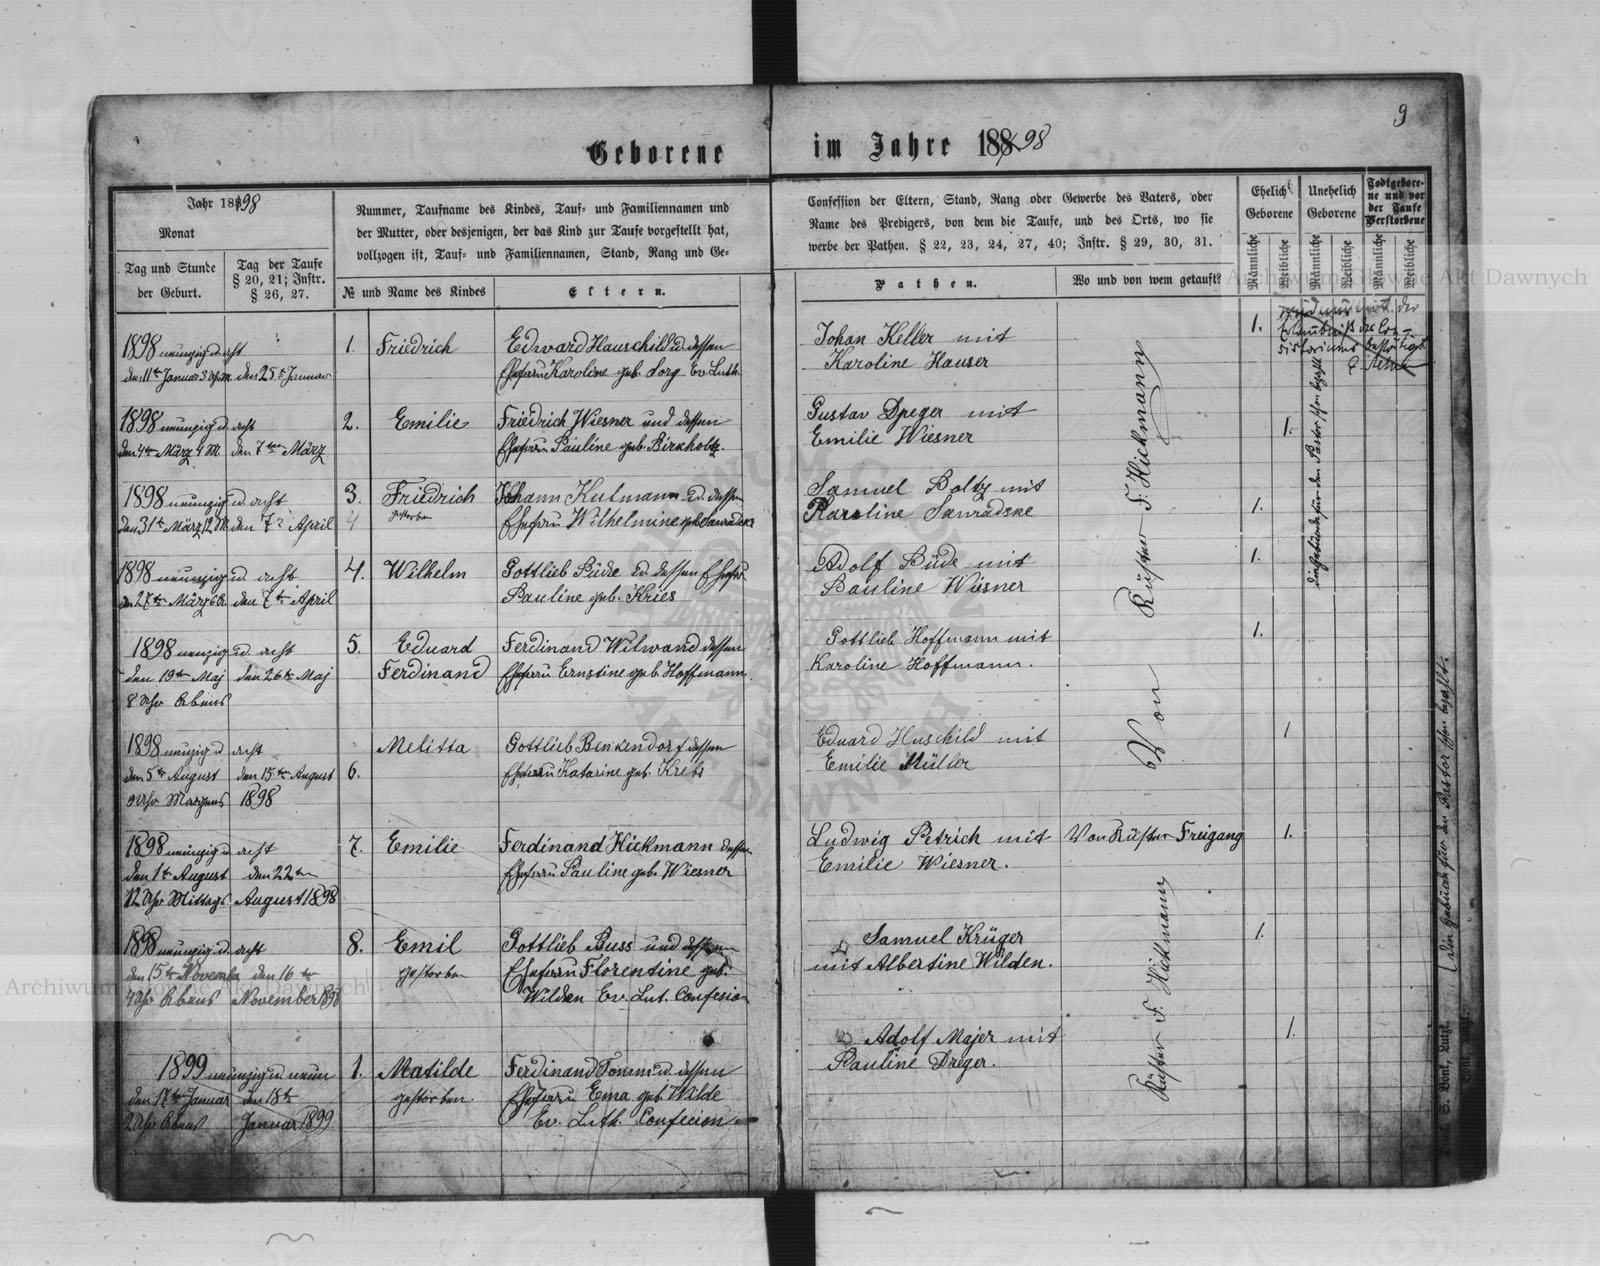 9
Geborene im Jahre 188 98
Jahr 18 98
Monat
Tag und Stunde
der Geburt.
Tag der Taufe
§ 20, 21; Instr.
§ 26, 27.
Nummer, Taufname des Kindes, Tauf- und Familiennamen und
der Mutter, oder desjenigen, der das Kind zur Taufe vorgestellt hat,
vollzogen ist, Tauf- und Familiennamen, Stand, Rang und Ge-
№ und Name des Kindes
Eltern.
Confession der Eltern, Stand, Rang oder Gewerbe des Vaters, oder
Name des Predigers, von dem die Taufe, und des Orts, wo sie
werbe der Pathen. § 22, 23, 24, 27, 40; Instr. § 29, 30, 31.
Pathen.
Wo und von wem getauft?
Ehelich
Geborene
Unehelich
Geborene
Todtgebore-
ne und vor
der Taufe
Verstorbene
Männliche
Weibliche
Männliche
Weibliche
Männliche
Weibliche
1898 neunzig u. acht
den 11te Januar 3 den 25te Januar
1. Friedrich
Edward Hauschild u. dessen
Ehefrau Karoline geb. Lorg Ev. Luth.
Johan Keller mit
Karoline Hauser
1.
1898 neunzig u. acht
den 4te März 4 M. den 7ten März
2. Emilie
Friedrich Wiesner und dessen
Ehefrau Pauline geb. Birkholtz.
Gustav Dreger mit
Emilie Wiesner
1.
1898 neunzig u. acht
den 31te März 12 M. den 7te April
3. Friedrich
gestorben
Johann Kutmann u. dessen
Ehefrau Wilhelmine geb. Sanradske
Samuel Boltz mit
Karoline Sanradske
1.
1898 neunzig u. acht
den 27te März den 7te April
4. Wilhelm
Gottlieb Büde u. dessen Ehefrau
Pauline geb. Kries
Adolf Büde mit
Pauline Wiesner
1.
1898 neunzig u. acht
den 19ten Maj den 26te Maj
8 Uhr Abens
5. Eduard
Ferdinand
Ferdinand Wilwand dessen
Ehefrau Ernstine geb. Hoffmann.
Gottlieb Hoffmann mit
Karoline Hoffmann.
1.
1898 neunzig u. acht
den 5te August den 15ten August
9 Uhr Morgens 1898
6. Melitta
Gottlieb Benkendorf dessen
Ehefrau Katarine geb. Krebs
Eduard Huschild mit
Emilie Müller
1
1898 neunzig u. acht
den 1te August den 22ten
12 Uhr Mittags August 1898
7. Emilie
Ferdinand Hickmann dessen
Ehefrau Pauline geb. Wiesner
Ludwig Petrich mit
Emilie Wiesner.
Von Küster Freigang
1.
1898 neunzig u. acht
den 15te November den 16te
4 Uhr Abens November 1898
8. Emil
gestorben
Gottlieb Buss und dessen
Ehefrau Florentine geb.
Wilden Ev. Lut. Confesion
Samuel Krüger
mit Albertine Wilden.
1.
1899 neunzig u. neun
den 17te Januar den 18te
2 Uhr Abens Januar 1899
1. Matilde
gestorben.
Ferdinand Tomm u. dessen
Ehefrau Ema geb. Wilde
Ev. Luth. Confecion
Adolf Majer mit
Pauline Dreger.
1.
Von Küster F. Hickmann
Küster F. Hickmann
Archiwum Główne Akt Dawnych
Archiwum Główne Akt Dawnych